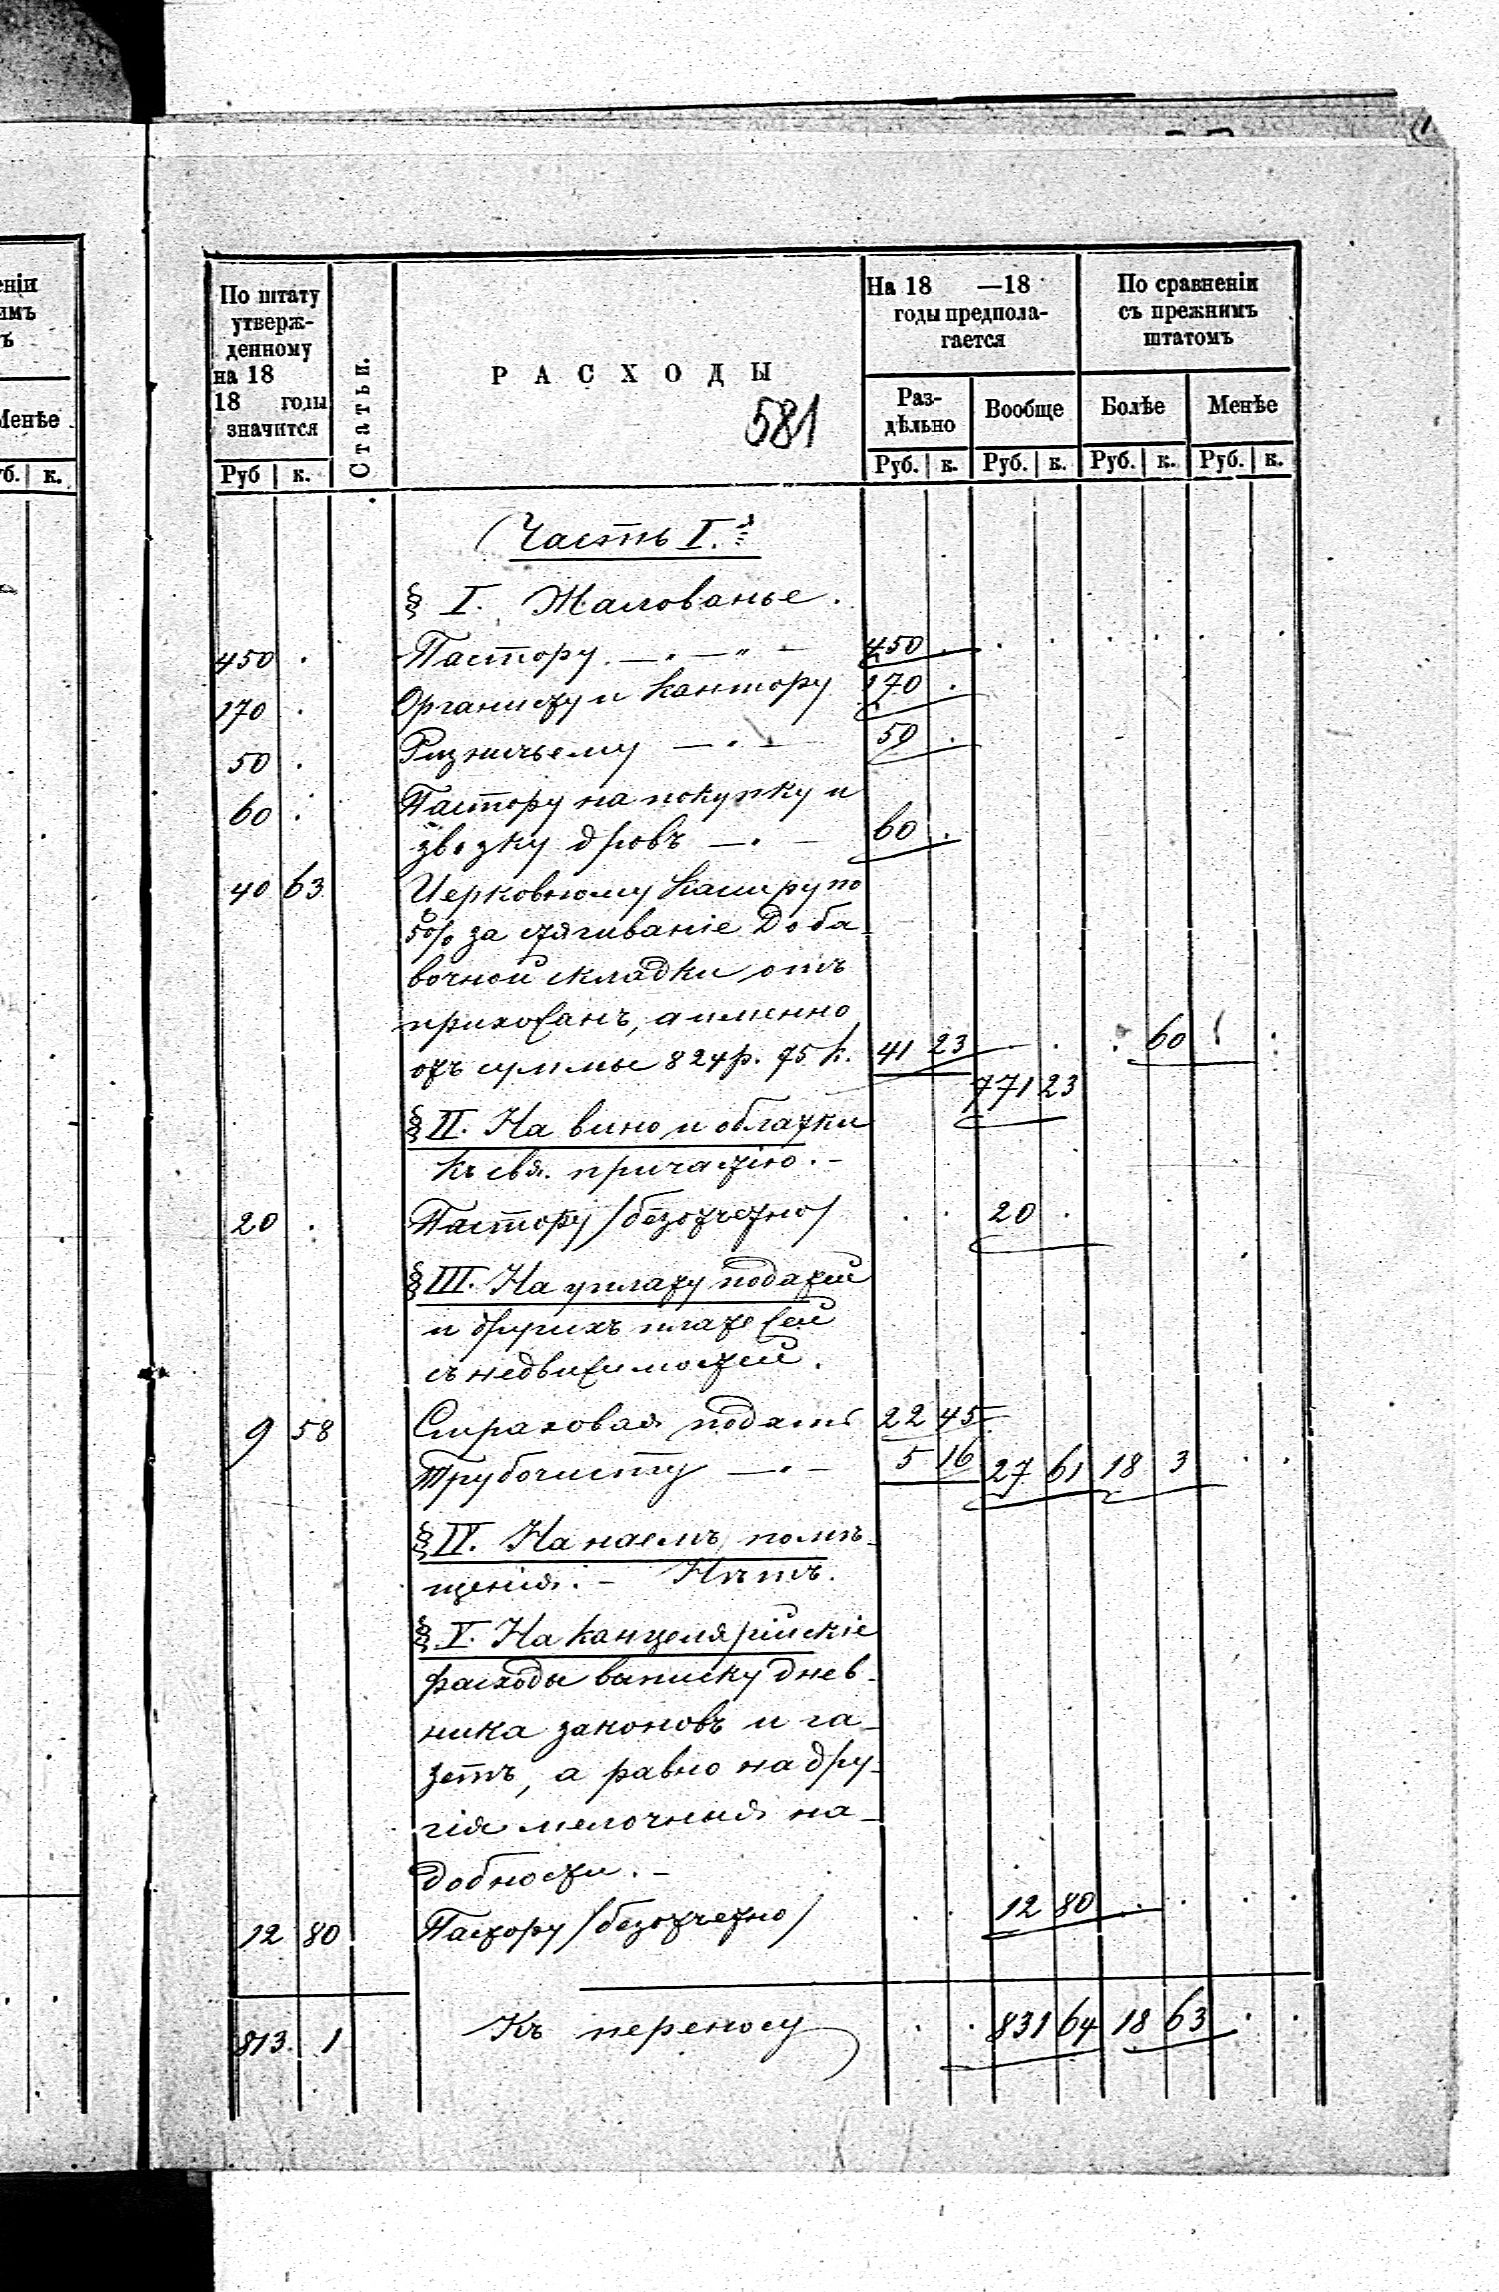 еніи
имъ
ъ
Менѣе
уб. к.
По штату
утверж-
денному
на 18
18 годы
значится
Статьи.
РАСХОДЫ
581
На 18 —18
годы предпола-
гается
По сравненіи
съ прежнимъ
штатомъ
Раз-
дѣльно
Вообще
Болѣе
Менѣе
Руб к.
Руб. к. Руб. к. Руб. к. Руб. к.
Часть I.ая
§ I. Жалованье.
450 . Пастору. — . — " — 450 .
170 . Органисту и кантору 170 .
50 . Ризничьему — . — 50 .
60 . Пастору на покупку и
звозку дровъ — . — 60 .
40 63 Церковному кассиру по
5% за стягиваніе доба-
вочной складки отъ
прихожанъ, а именно
отъ суммы 824 р. 75 к. 41 23 . . 60
771 23
§ II. На вино и облатки
къ свя. причастію. –
20 . Пастору /безотчетно/ . . 20 .
§ III. На уплату податей
и другихъ платежей
съ недвижимостей.
9 58 Страховая подать 22 45
Трубочисту — . — 5 16 27 61 18 3 . .
§ IV. На наемъ помѣ-
щенія. – Нѣтъ.
§ V. На канцелярійскіе
расходы выписку днев-
ника законовъ и га-
зетъ, а равно на дру-
гія мелочныя на-
добности. –
12 80 Пастору /безотчетно/ . . 12 80 . . . .
813 1 Къ переносу . . 831 64 18 63 . .